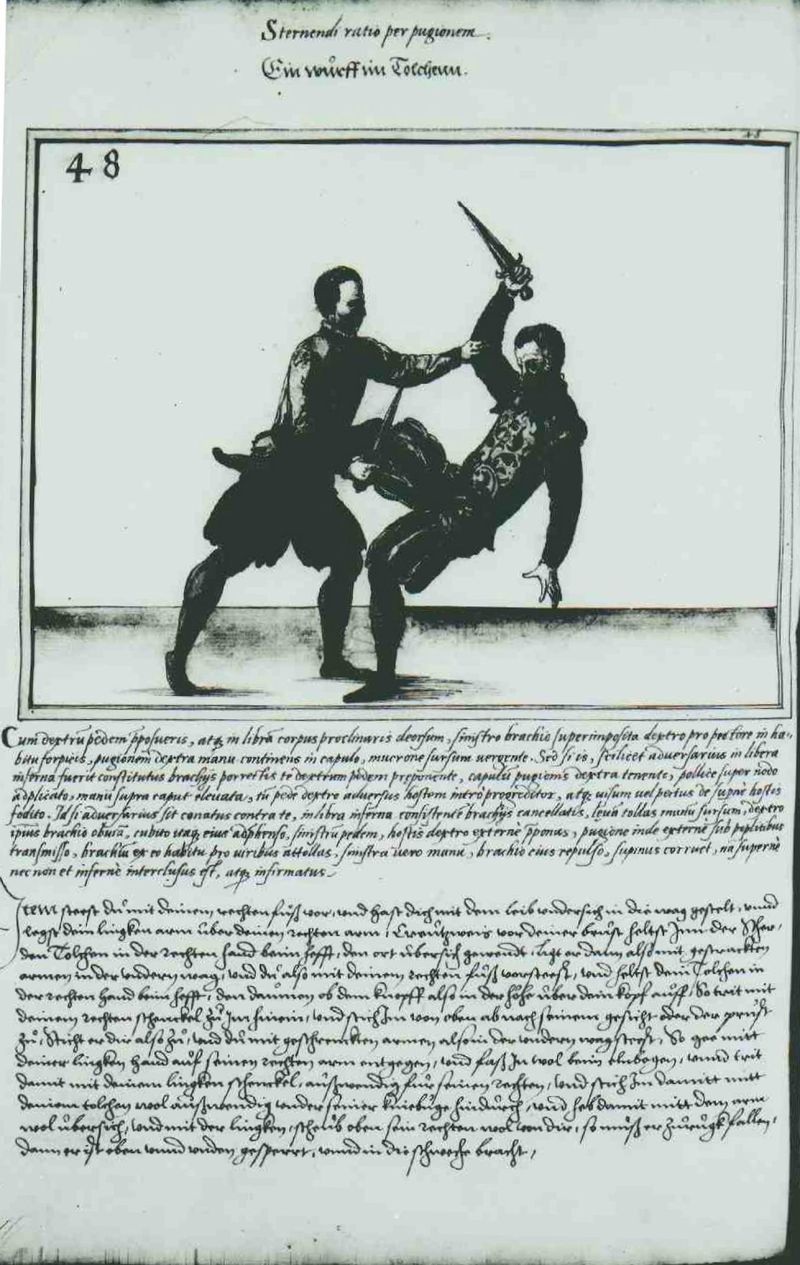 Sternendi ratio per pugionem.
Ein wurff im Tolchenn.
48
48
Cum dextrū pedem pposueris, atq, in libra corpus proclinaris deorsum, sinistro brachio superimposita dextro pro pectore in ha-
bitu forpicis, pugionem dextra manu continens in capulo, mucrone sursum vergente. Sed si is, scilicet adversarius in libera
inferna fuerit constitutus brachijs porrectis te dextrum pedem preponente, capulū pugionis dextra tenente, pollice super nodo
adplicato, manu supra caput elevata, tu pede dextro adversus hostem intro progreditor, atq, visum vel pectus de superne hostis
fodito. Id si adversarius sit conatus contra te, in libra inferna consistente brachijs cancellatis, levā tollas manū sursum, dextro
ipius brachio obviā, cubito itaq, eius adphenso, sinistrū pedem, hostis dextro externe pponas, pugione inde externe sub poplitibus
transmisso, brachiū ex eo habitu pro viribus attollas, sinistra vero manu, brachio eius repulso, supinus corruet, nā superne
nec non et inferne interclusus est, atq, infirmatus.
Item steest du mit deinem rechten fuß vor, vnd hast dich mit dem leib vndersich in die wag gestelt, vnnd
legst dein lingken arm über deinen rechten arm, Creutzweis vor deiner brust heltst Inn der Scher,
den Tolchen in der rechten hand beim hefft, den ort übersich gewendt, ligt er dann also mit gestrackten
armen in der vndern wag, vnd du also mit deinem rechten fuß vorsteest, vnd heltst dein Tolchen in
der rechten hand beim hefft, den daumen ob dem knopff also in der höhe über dein kopf auff, So trit mit
deinem rechten schenckel zu Im hinein, vnd stich Im von oben ab nach seinem gesicht oder der prust
zu, Sticht er dir also zu, vnd du mit geschrenckten armen also in der vndern wag steest, So gee mitt
deiner lingken hand auf seinen rechten arm entgegen, vnd fass In wol beim elnbogen, vnnd trit
damit mit deinem lingken schenckel, außwendig für seinen rechten, vnd stich Im damitt mitt
deinem tolchen wol außwendig vnder seiner kniebuge hindurch, vnd heb damit mitt dem arm
wol übersich, vnd mit der lingken, scheub oben sein rechten wol von dir, so muß er zurugk fallen,
dann er ist oben vnnd vnden gesperrt, vnnd in die schweche bracht,